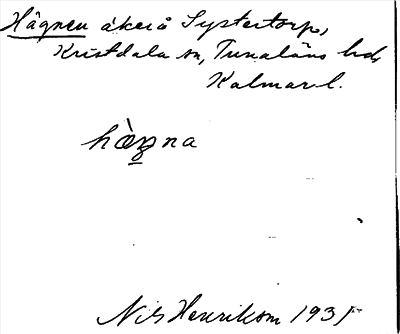 Hägnen åker å Systertorp,
Kristdala sn, Tunaläns hd,
Kalmar l.
hæ̀ꞑna
Nils Henriksson 1935